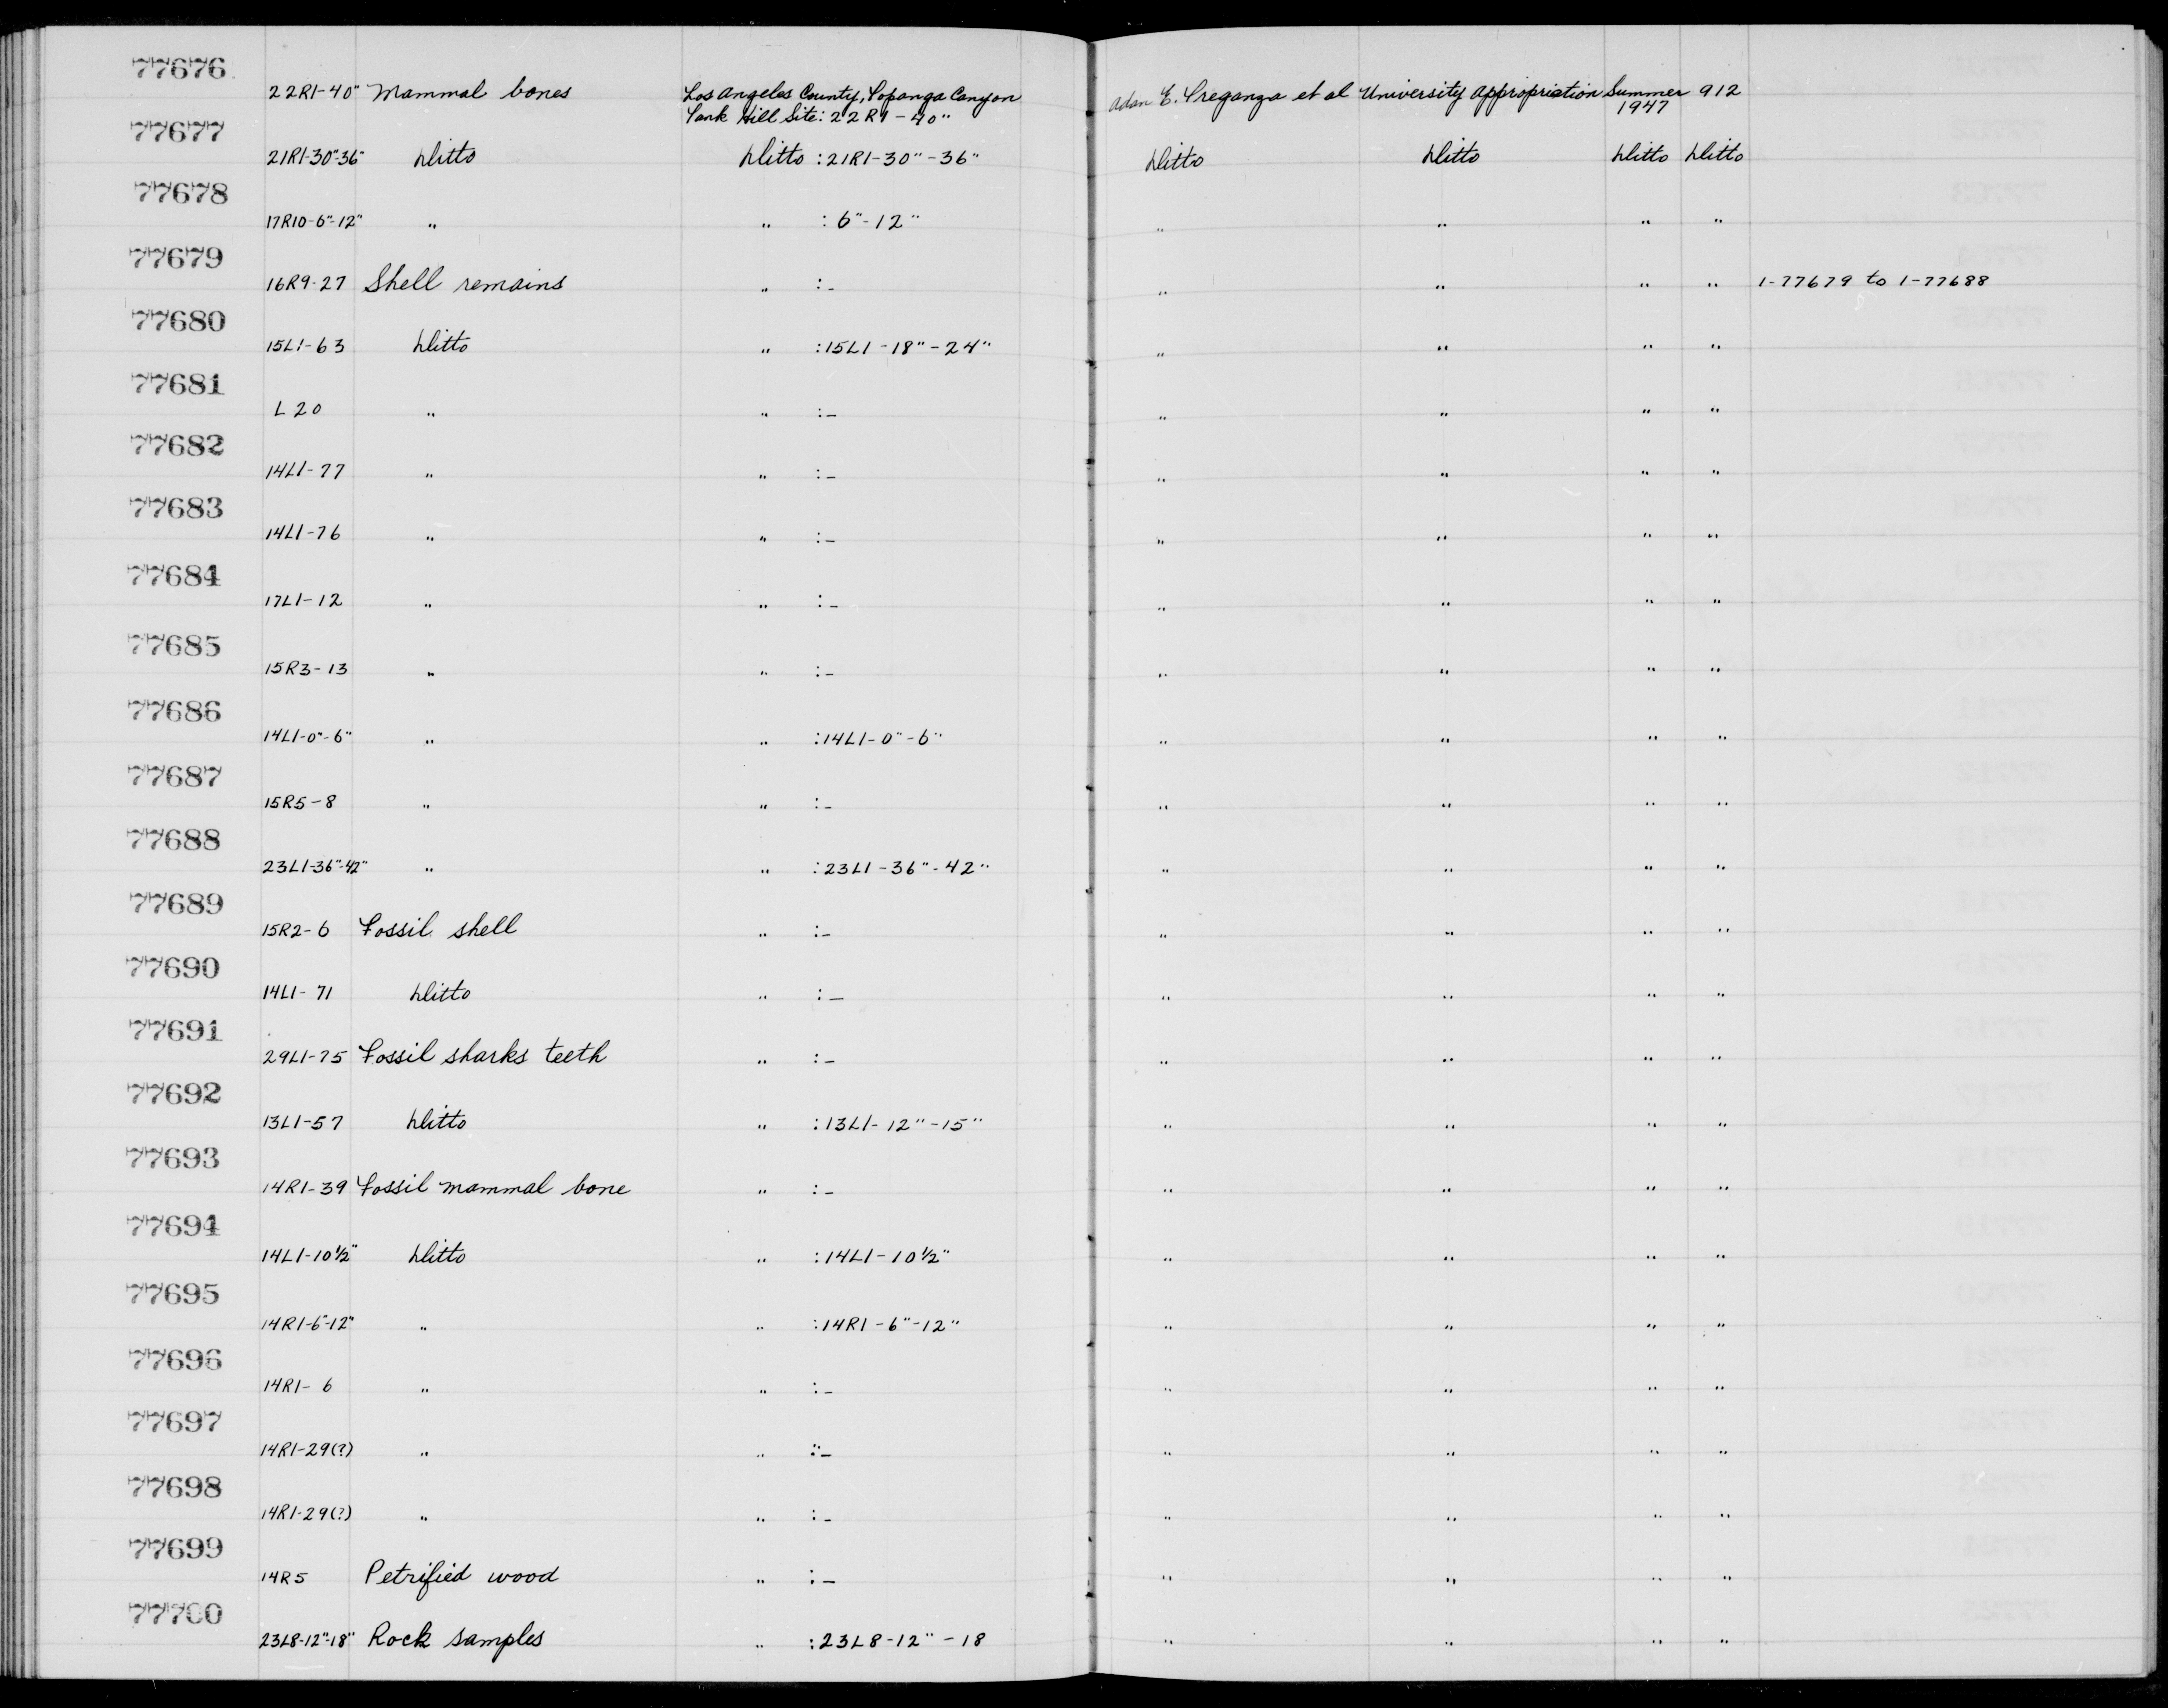 77676
22R1-40" Mammal bones Los Angeles County, Topanga Canyon Adan E. Treganza et al University Appropriation Summer 912
Tank Hill Site: 22R1-40" 1947
77677
21R1-30"-36" Ditto Ditto :21R1-30"-36" Ditto Ditto Ditto Ditto
77678
17R10-6"-12" " " : 6"-12" " " " "
77679
16R9-27 Shell remains " :- " " " " 1-77679 to 1-77688
77680
15L1-63 Ditto " :15L1-18"-24" " " " "
77681
L20 " " :- " " " "
77682
14L1-77 " " :- " " " "
77683
14L1-76 " " :- " " " "
77684
17L1-12 " " :- " " " "
77685
15R3-13 " " :- " " " "
77686
14L1-0"-6" " " :14L1-0"-6" " " " "
77687
15R5-8 " " :- " " " "
77688
23L1-36"-42" " " :23L1-36"-42" " " " "
77689
15R2-6 Fossil shell " :- " " " "
77690
14L1-71 Ditto " :- " " " "
77691
29L1-75 Fossil sharks teeth " :- " " " "
77692
13L1-57 Ditto " :13L1-12"-15" " " " "
77693
14R1-39 Fossil mammal bone " :- " " " "
77694
14L1-10½" Ditto " :14L1-10½" " " " "
77695
14R1-6"-12" " " :14R1-6"-12" " " " "
77696
14R1-6 " " :- " " " "
77697
14R1-29(?) " " :- " " " "
77698
14R1-29(?) " " :- " " " "
77699
14R5 Petrified wood " :- " " " "
77700
23L8-12"-18" Rock samples " :23L8-12"-18 " " " "